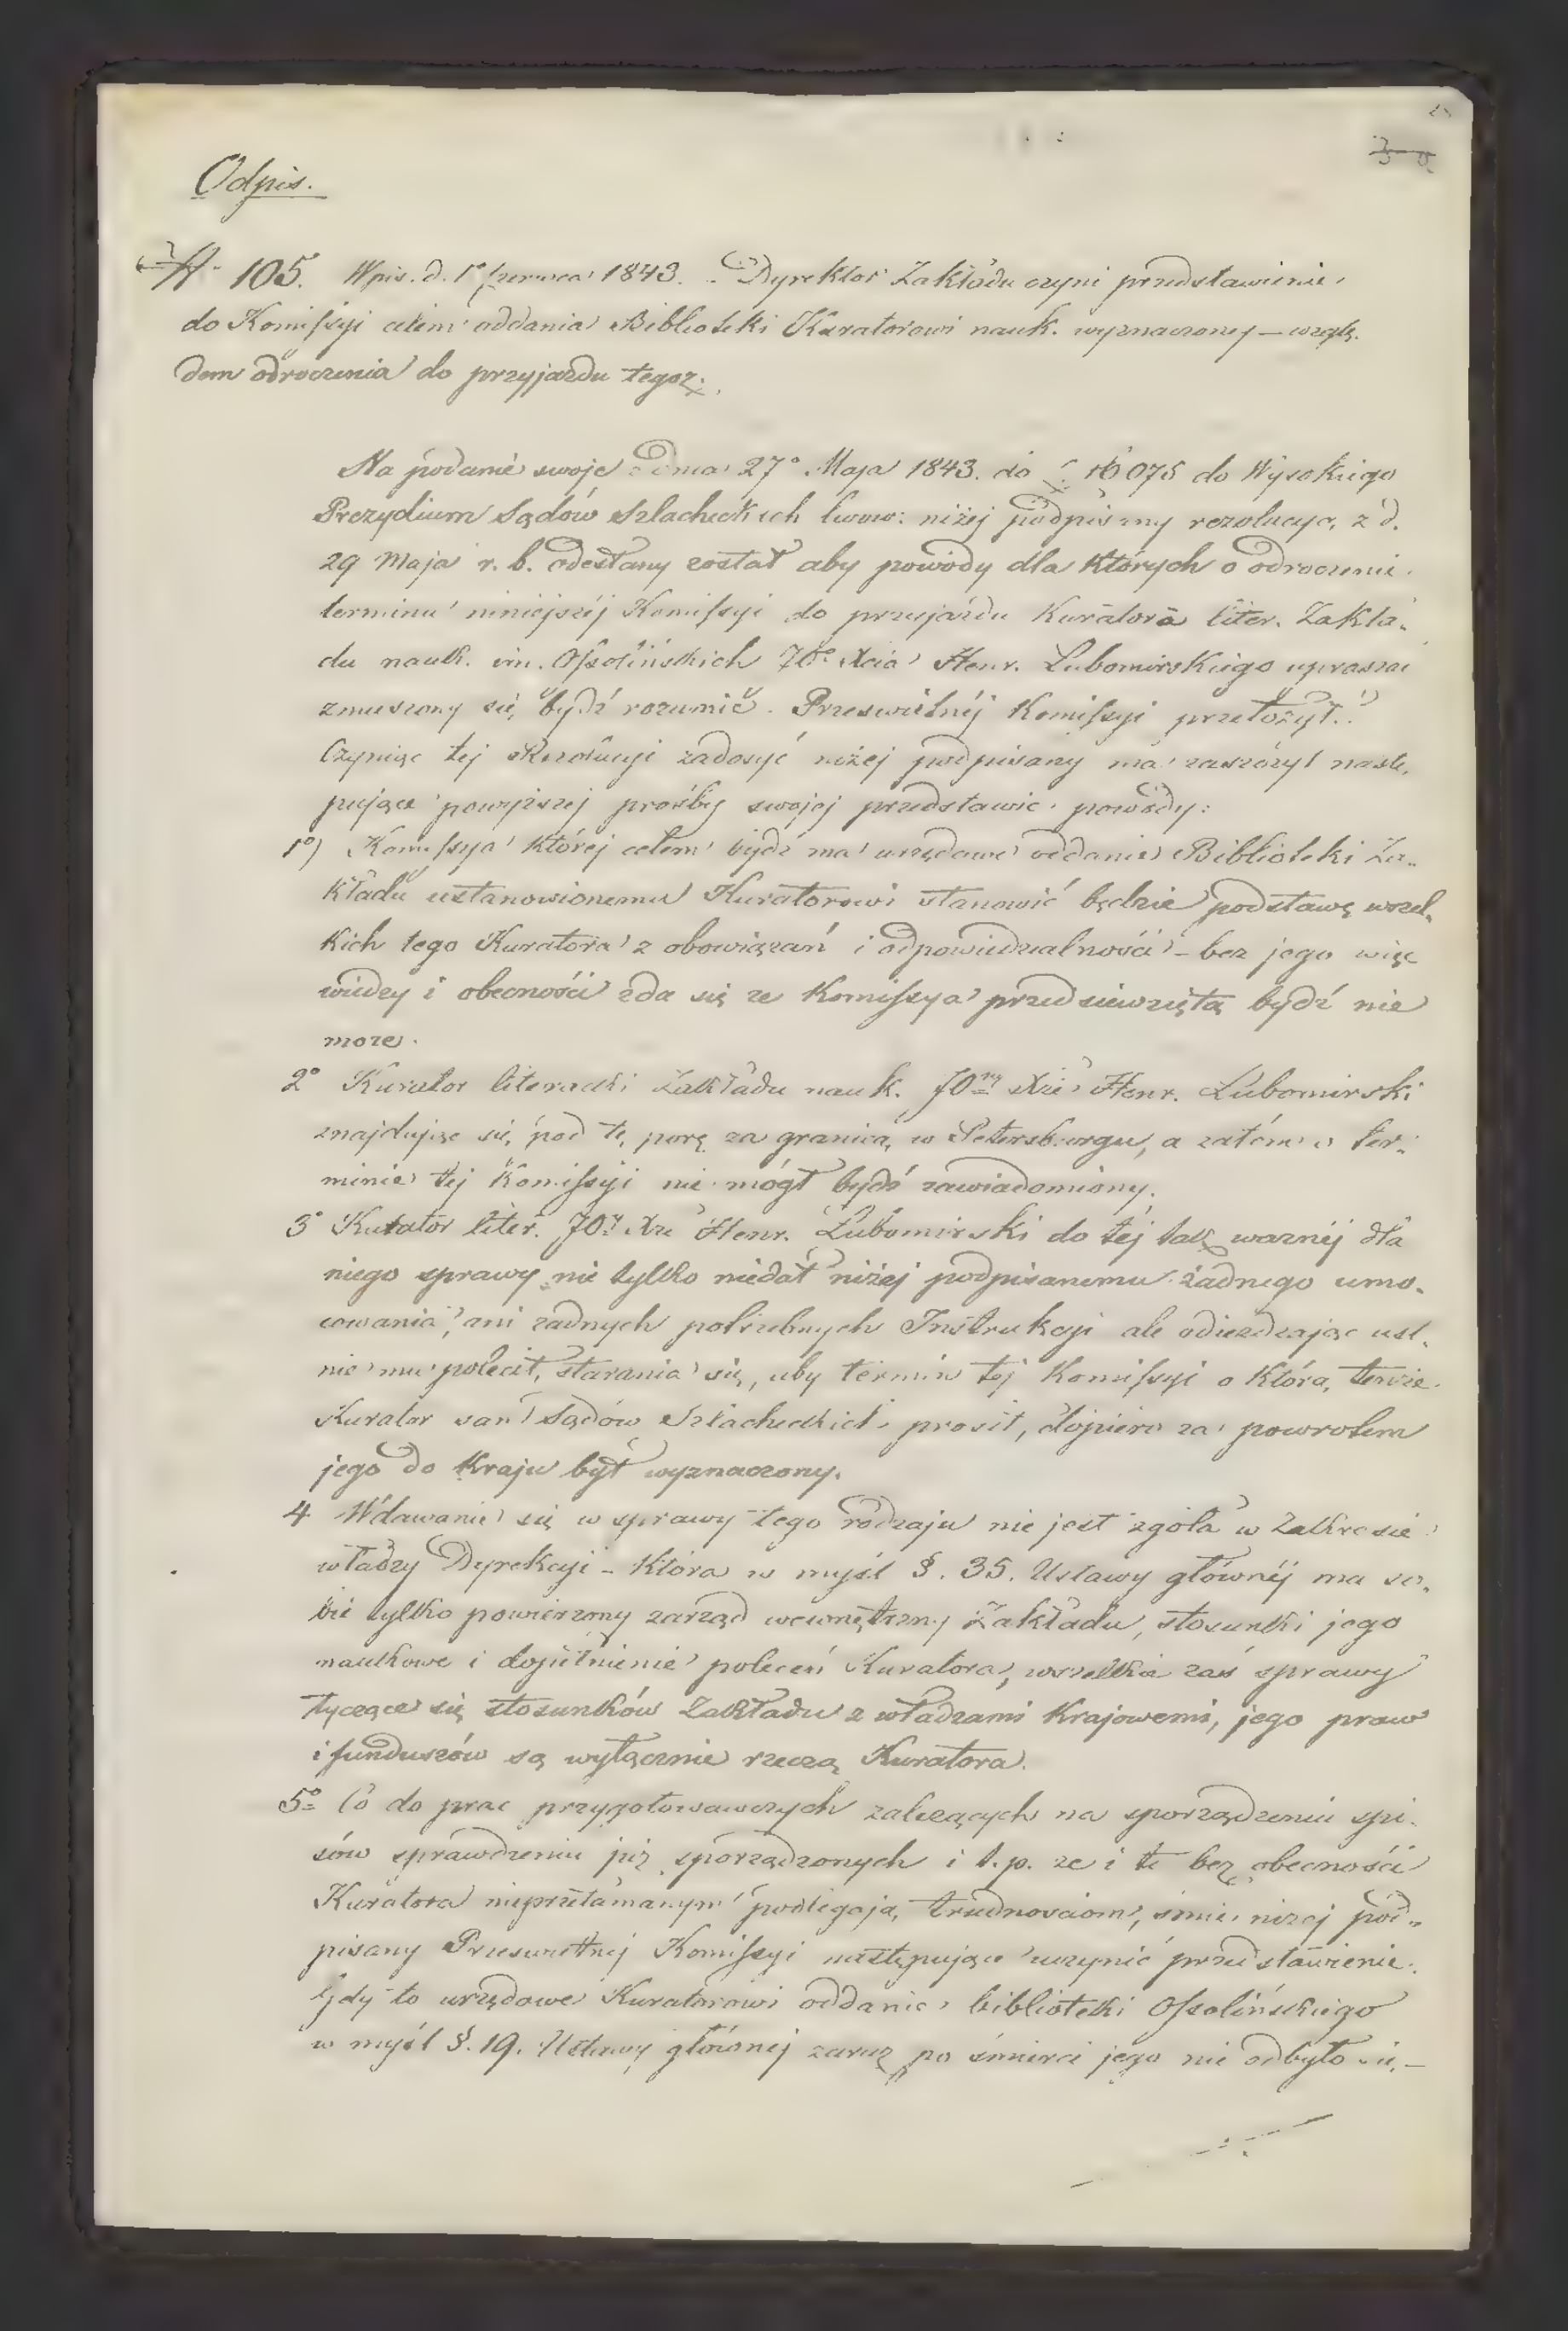 Odpis.
N. 105. Wpis. d. 1° Czerwca 1843. Dyrektor Zakładu czyni przedstawienie
do Komissyi celem oddania Biblioteki Kuratorowi nauk. wyznaczonej – wzglę-
dem odroczenia do przyjazdu tegoz.
Na podanie swoje z dnia 27° Maja 1843. do 16075 do Wysokiego
Prezydium Sądów Szlacheckich lwow: niżej podpisany rezolucyą z d.
29 Maja r. b. odesłany został aby powody dla których o odroczenie
terminu niniejszéj Komissyi do przyjazdu Kuratora liter. Zakła-
du nauk. im. Ossolińskich JO Xcia Henr. Lubomirskiego upraszać
zmuszony się bydź rozumié. Prześwietnéj Komissyi przełożył.
Czyniąc tej Rezolucyi zadosyć niżej podpisany ma zaszczyt nastę-
pujące powyższej prośby swojej przedstawić powody:
1°) Komissya której celem bydź ma urzędowe oddanie Biblioteki Za-
kładu ustanowionemu Kuratorowi stanowić będzie podstawę wszel-
kich tego Kuratora zobowiązań i odpowiedzialności – bez jego więc
wiedzy i obecności zda się ze Komissya przedsiewziętą bydź nie
moze.
2° Kurator literacki Zakładu nauk. JO Xże Henr. Lubomirski
znajdując się pod tę porę za granicą w Petersburgu, a zatém o ter-
minie tej Komissyi nie mógł bydź zawiadomiony.
3° Kurator liter. JO Xże Henr. Lubomirski do téj tak waznéj dla
niego sprawy nie tylko niedał niżej podpisanemu żadnego umo-
cowania, ani zadnych potrzebnych Instrukcyi ale odiezdzając ust-
nie mu polecił, starania się, aby termin téj Komissyi o którą tenże
Kurator sam Sądów Szlacheckich prosił, dopiero za powrotem
jego do Kraju był wyznaczony.
4 Wdawanie się w sprawy tego rodzaju nie jest zgoła w Zakresie
władzy Dyrekcyi – która w myśl §. 35. Ustawy głównéj ma so-
bie tylko powierzony zarząd wewnętrzny Zakładu, stosunki jego
naukowe i dopełnienie poleceń Kuratora, wszelkie zaś sprawy
tyczące się stosunków Zakładu z władzami Krajowemi, jego praw
i funduszów są wyłącznie rzeczą Kuratora.
5° Co do prac przygotowawczych zalezących na sporządzeniu spi-
sów sprawdzeniu już sporządzonych i t. p. ze i te bez obecności
Kuratora nieprzełamanym podlegają trudnosciom, śmie nizej pod-
pisany Prześwietnej Komissyi następujące uczynić przedstawienie.
Gdy to urzędowe Kuratorowi oddanie biblioteki Ossolińskiego
w myśl §. 19. Ustawy głównej zaraz po śmierci jego nie odbyło się –